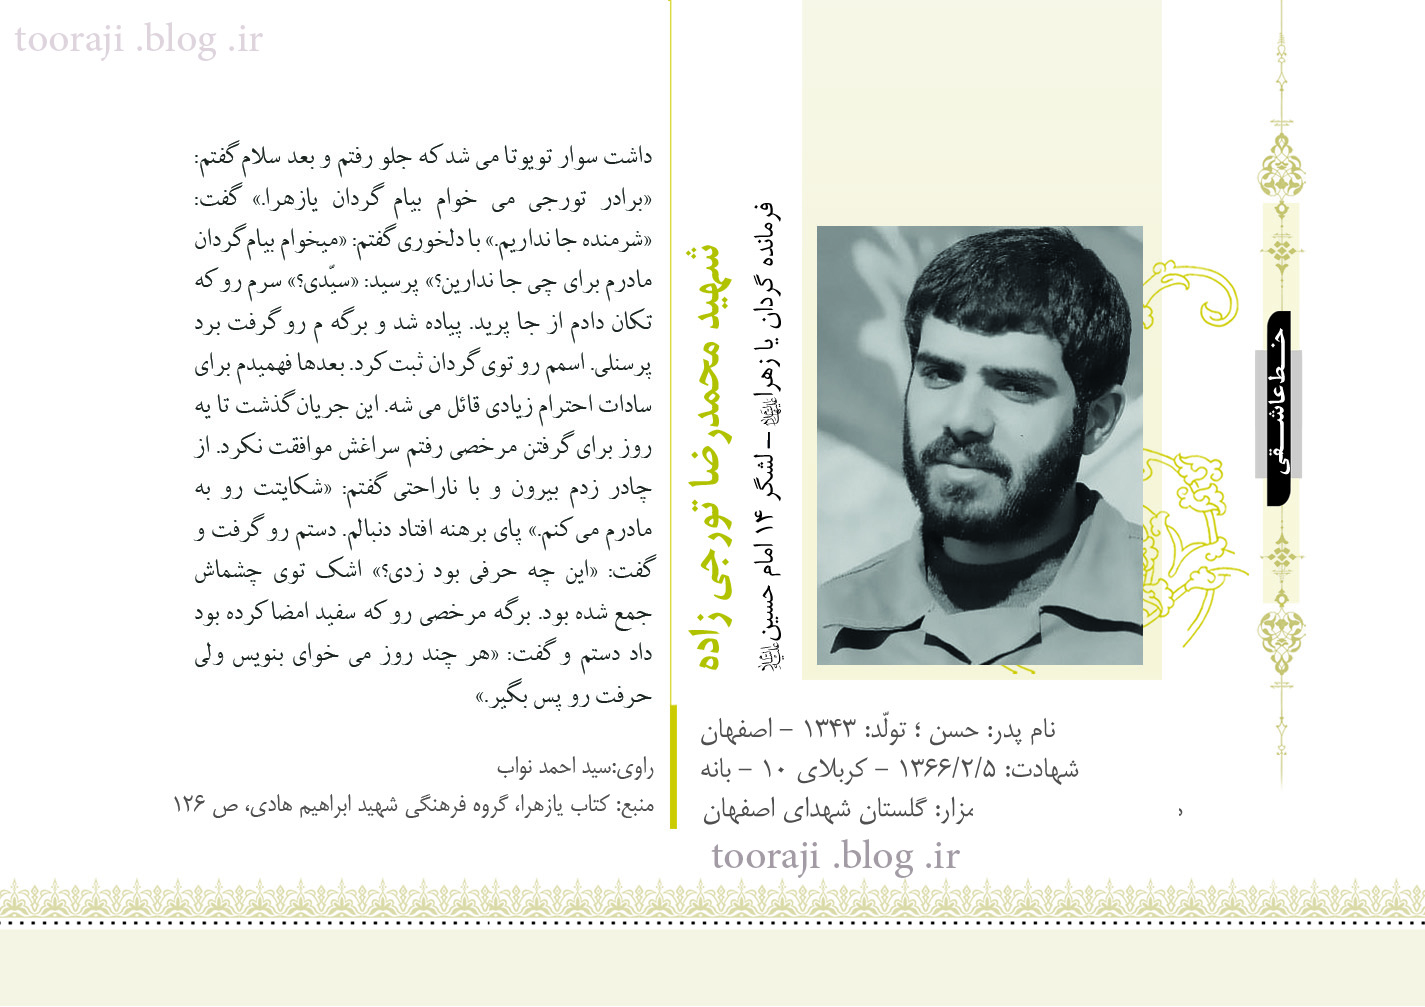 tooraji .blog .ir
خط عاشقی
شهید محمدرضا تورجی زاده
فرمانده گردان یا زهرا - لشگر ۱۴ امام حسین
نام پدر: حسن ؛ تولّد: ۱۳۴۳ - اصفهان
شهادت: ۱۳۶۶/۲/۵ - کربلای ۱۰ - بانه
مزار: گلستان شهدای اصفهان
tooraji .blog .ir
داشت سوار تویوتا می شد که جلو رفتم و بعد سلام گفتم:
«برادر تورجی می خوام بیام گردان یازهرا.» گفت:
«شرمنده جا نداریم.» با دلخوری گفتم: «میخوام بیام گردان
مادرم برای چی جا ندارین؟» پرسید: «سیّدی؟» سرم رو که
تکان دادم از جا پرید. پیاده شد و برگه م رو گرفت برد
پرسنلی. اسمم رو توی گردان ثبت کرد. بعدها فهمیدم برای
سادات احترام زیادی قائل می شه. این جریان گذشت تا یه
روز برای گرفتن مرخصی رفتم سراغش موافقت نکرد. از
چادر زدم بیرون و با ناراحتی گفتم: «شکایتت رو به
مادرم می کنم.» پای برهنه افتاد دنبالم. دستم رو گرفت و
گفت: «این چه حرفی بود زدی؟» اشک توی چشماش
جمع شده بود. برگه مرخصی رو که سفید امضا کرده بود
داد دستم و گفت: «هر چند روز می خوای بنویس ولی
حرفت رو پس بگیر.»
راوی:سید احمد نواب
منبع: کتاب یازهرا، گروه فرهنگی شهید ابراهیم هادی، ص ۱۲۶